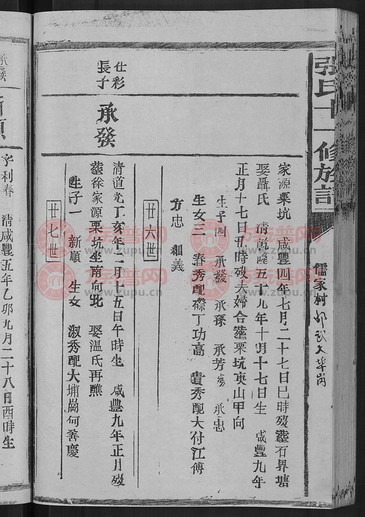 張氏十一修族譜
儒家村
家源栗坑 咸豐四年七月二十七日巳時歿葬石界塘
娶聶氏 清乾隆五十九年十月十七日生 咸豐九年
正月十七日丑時歿夫婦合葬栗坑寅山甲向
生子四 承發 承琢 承芳 承忠
生女三 春秀配 丁功高 貴秀配大付江傳
方忠 細義
廿六世
仕彩
長子
承發
清道光丁亥年二月十五日午時生 咸豐九年正月歿
葬徐家源栗坑坐南向北 娶溫氏再醮
生子一 新順 生女 淑秀配大埔崗何善慶
廿七世
承發
新順
字利春 清咸豐五年乙卯九月二十八日酉時生